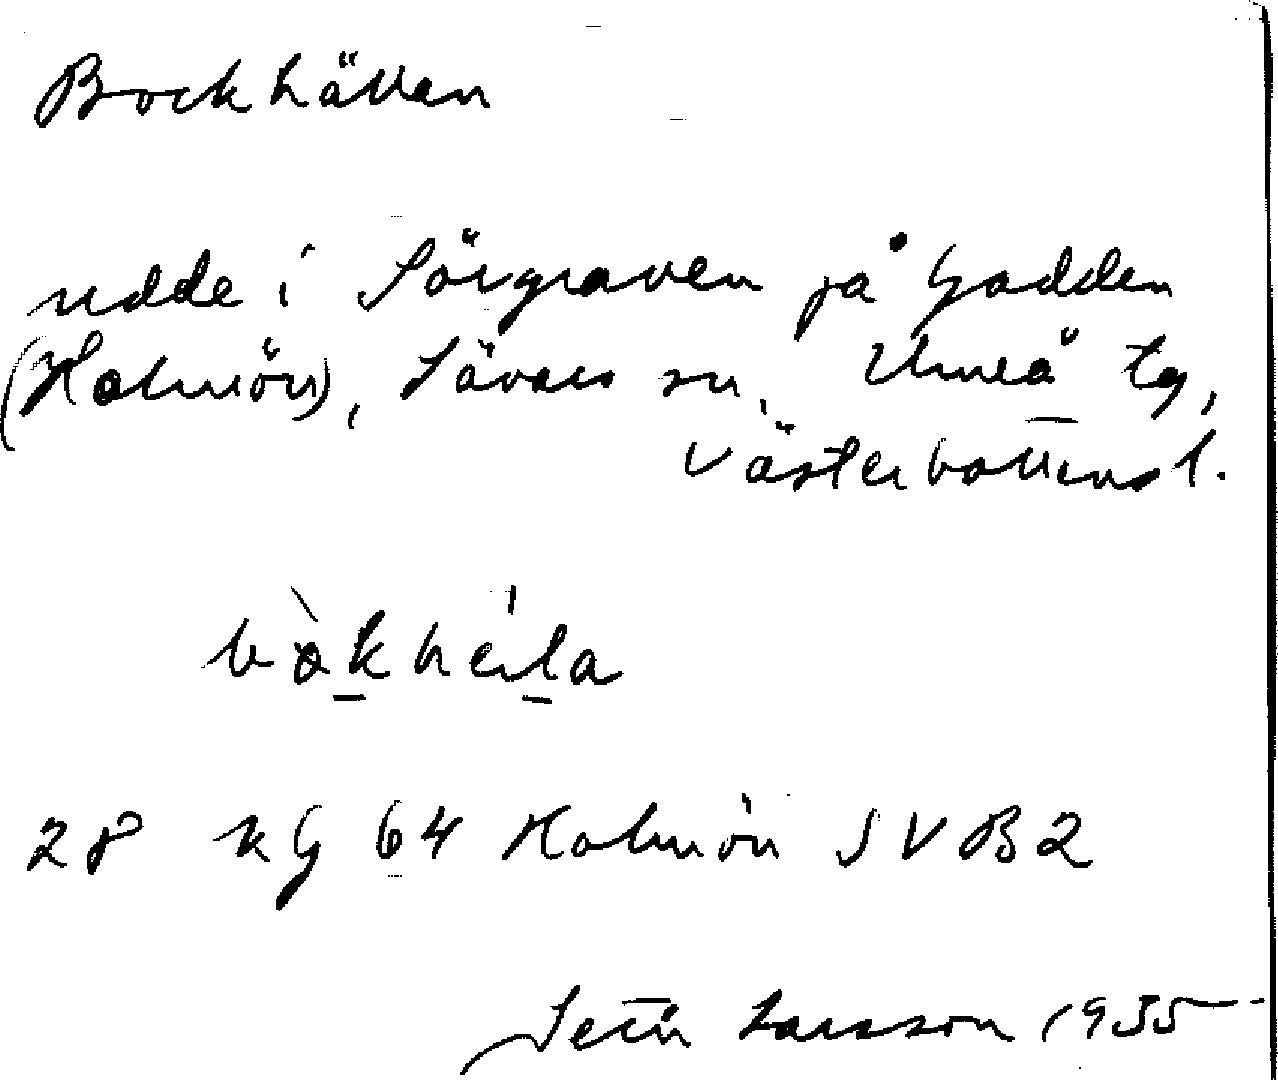 Bockhällan
udde i Sörgraven på Gadden
(Holmön), Sävars sn, Umeå tg,
Västerbottens l.
28 KG 64 Holmön SVB2
Sein Larsson 1955